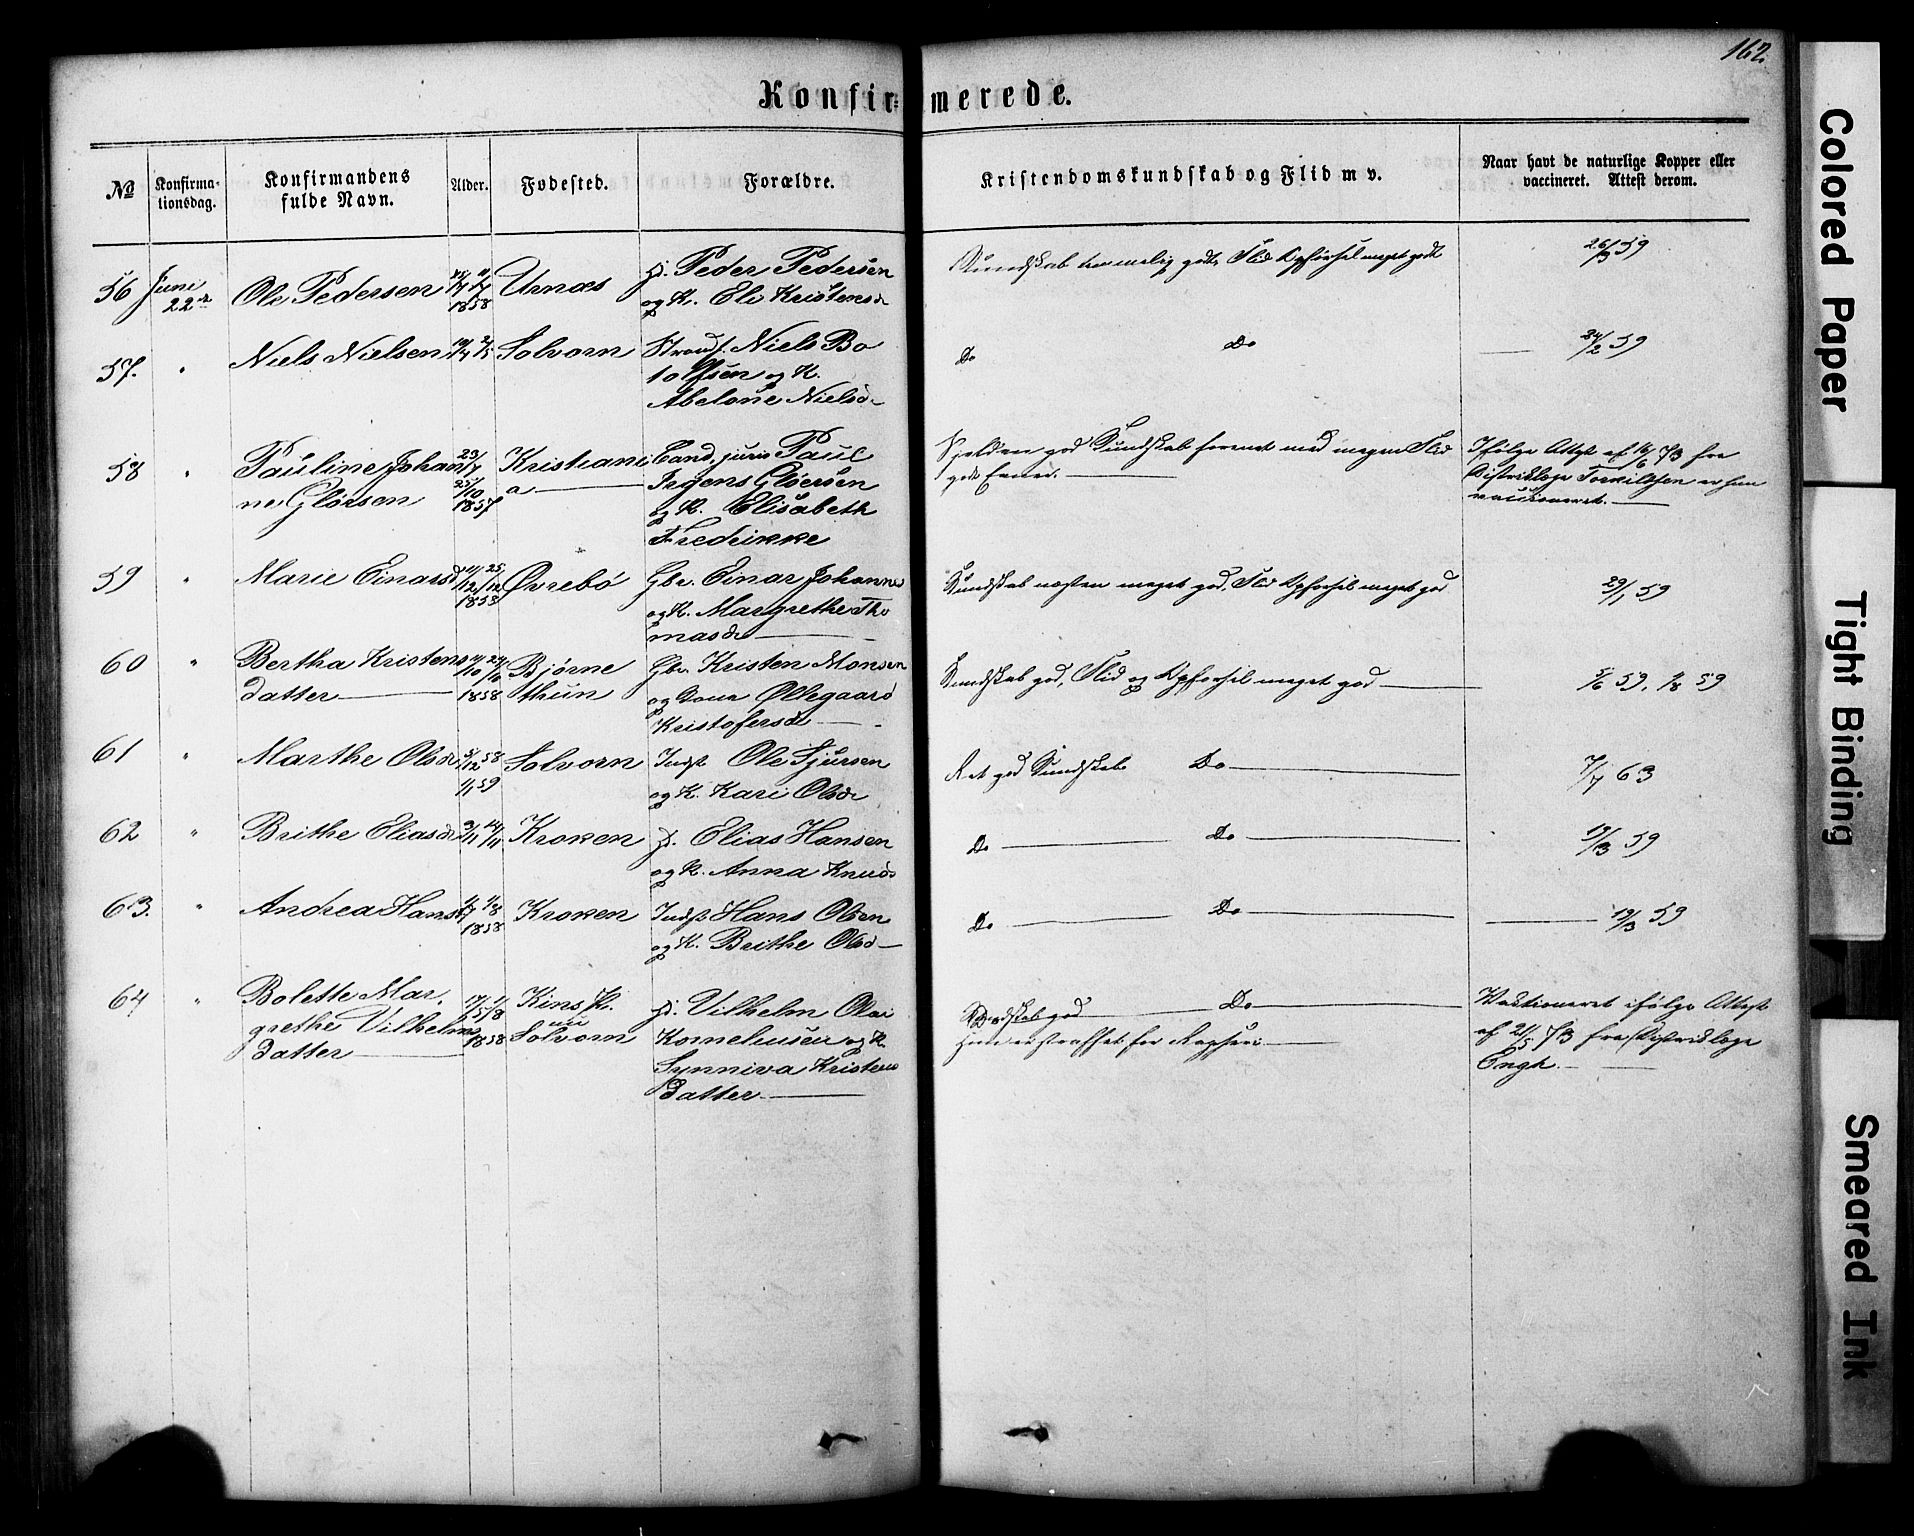 162.
Konfirmerede.
No
Konfirma-
tionsdag.
Konfirmandens
fulde Navn.
Alder.
Fødested.
Forældre.
Kristendomskundskab og Flid m v.
Naar havt de naturlige Kopper eller
vaccineret. Attest derom.
56 Juni
22de
Ole Pedersen
1858
Urnæs
Peder Pedersen
og K. Eli Kristensd
Kundskab temmelig godt, Flid Opførsel meget godt
26/3 59
57. " Niels Nielsen
Solvorn
Strands. Niels Bo
tolfsen og K.
Abelone Nielsd
Do Do
24/2 59
58 " Pauline Johan
ne Gløersen
23/7
25/10
1857
Kristiani
a
Cand. juris Paul
Irgens Gløersen
og K. Elisabeth
Fredrikke
Sjelden god Kundskab forenet med megen Flid
gode Evner.
Ifølge Attest af 16/6 73 fra
Distriktslæge Torkildsen er hun
vaccineret.
59 " Marie Einarsd
1858
Øvrebø
Gbr. Einar Johannes
og K. Margrethe Tho
masdr
Kundskab næsten meget god, Flid Opførsel meget god
29/1 59
60 " Bertha Kristens
datter
1858
Bjørne
thun
Gbr. Kristen Monsen
og Kone Øllegaard
Kristofersdr
Kundskab god, Flid og Opførsel meget god
5/6 59, 1/8 59
61 " Marthe Olsdr
5/12 58
1/1 59
Solvorn
Indst Ole Sjursen
og K. Kari Olsdr
Ret god Kundskab Do
7/7 63
62 " Brithe Eliasdr
9/11 14/11
Kroken
Elias Hansen
og K. Anna Knudsd
Do Do
19/3 59
63. " Andrea Hansd
1858
Kroken
Indst Hans Olsen
og K. Brithe Olsd
Do Do
19/3 59
64 " Bolette Mar
grethe Vilhelms
datter
1858
Kins P.
nu
Solvorn
Vilhelm Olai
Korneliusen og K
Synniva Kristens
datter
Kundskab god Do
Hun er straffet for Rapseri
Vaktioneret ifølge Attest
af 21/5 73 fra Distriktslæge
Engh.
Colored Paper
Tight Binding
Smeared Ink